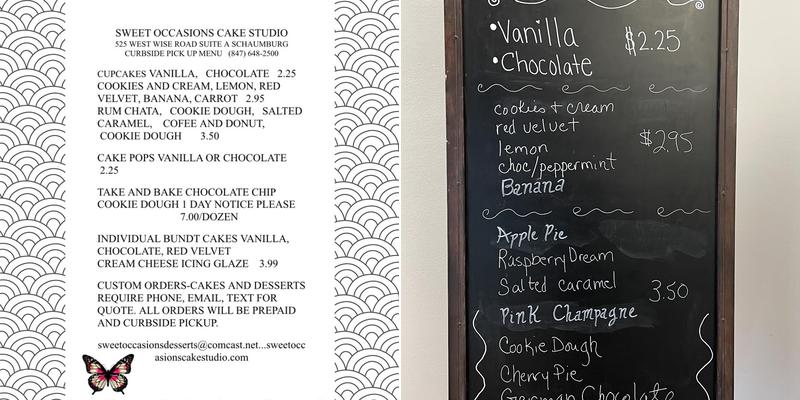 SWEET OCCASIONS CAKE STUDIO
525 WEST WISE ROAD SUITE A SCHAUMBURG
CURBSIDE PICK UP MENU (847) 648-2500
CUPCAKES VANILLA, CHOCOLATE 2.25
COOKIES AND CREAM, LEMON, RED
VELVET, BANANA, CARROT 2.95
RUM CHATA, COOKIE DOUGH, SALTED
CARAMEL, COFEE AND DONUT,
COOKIE DOUGH 3.50
CAKE POPS VANILLA OR CHOCOLATE
2.25
TAKE AND BAKE CHOCOLATE CHIP
COOKIE DOUGH 1 DAY NOTICE PLEASE
7.00/DOZEN
INDIVIDUAL BUNDT CAKES VANILLA,
CHOCOLATE, RED VELVET
CREAM CHEESE ICING GLAZE 3.99
CUSTOM ORDERS-CAKES AND DESSERTS
REQUIRE PHONE, EMAIL, TEXT FOR
QUOTE. ALL ORDERS WILL BE PREPAID
AND CURBSIDE PICKUP.
sweetoccasionsdesserts@comcast.net...sweetocc
asionscakestudio.com
•Vanilla $2.25
•Chocolate
cookies + cream
red velvet
lemon $2.95
choc/peppermint
Banana
Apple Pie
Raspberry Dream
Salted caramel 3.50
Pink Champagne
Cookie Dough
Cherry Pie
German Chocolate